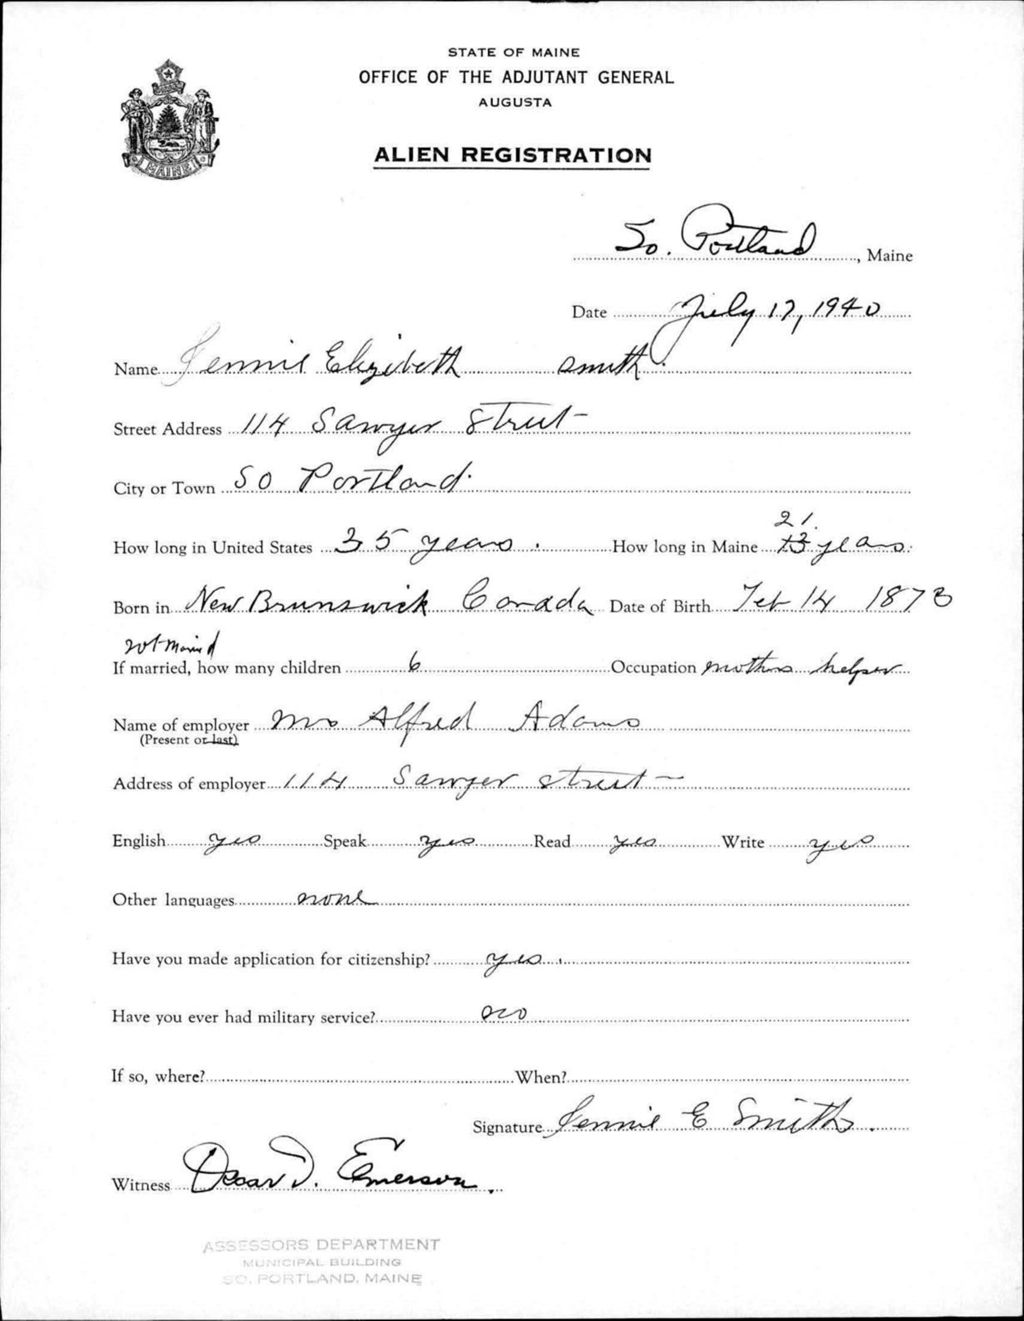 STATE OF MAINE
OFFICE OF THE ADJUTANT GENERAL
AUGUSTA
ALIEN REGISTRATION
MAINE
So. Portland, Maine
Date July 17, 1940
Name Jennie Elizabeth Smith
Street Address 114 Sawyer Street
City or Town So Portland
21.
How long in United States 35 years. How long in Maine years.
Born in New Brunswick Canada Date of Birth Feb 14 1873
not married
If married, how many children 6 Occupation mothers helper
Name of employer Mrs Alfred Adams
(Present or last)
Address of employer 114 Sawyer Street
English yes Speak yes Read yes Write yes
Other languages none
Have you made application for citizenship? yes.
Have you ever had military service? no
If so, where? When?
Signature Jennie E Smith.
Witness Oscar D. Emerson.
ASSESSORS DEPARTMENT
MUNICIPAL BUILDING
SO. PORTLAND, MAINE